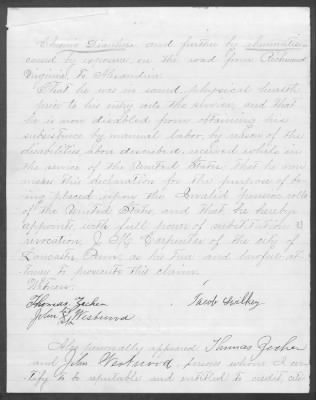 Chronic Diarrhea and further by rheumatism
caused by exposure on the road from Richmond
Virginia, to Alexandria.
That he was in sound physical health
prior to his entry into the service, and that
he is now disabled from obtaining his
subsistence by manual labor, by reason of the
disabilities above described, received while in
the service of the United States, that he now
makes this declaration for the purpose of be
ing placed upon the Invalid pension rolls
of the United States, and that he hereby
appoints with full power of substitution &
revocation, J. K. Carpenter of the city of
Lancaster Penn. as his true and lawful at
torney to prosecute this claim.
Witness
Thomas Zecher Jacob
John Westwood
Also personally appeared Thomas Zecher
and John Westwood, persons whom I cer
tify to be reputable and entitled to credit,